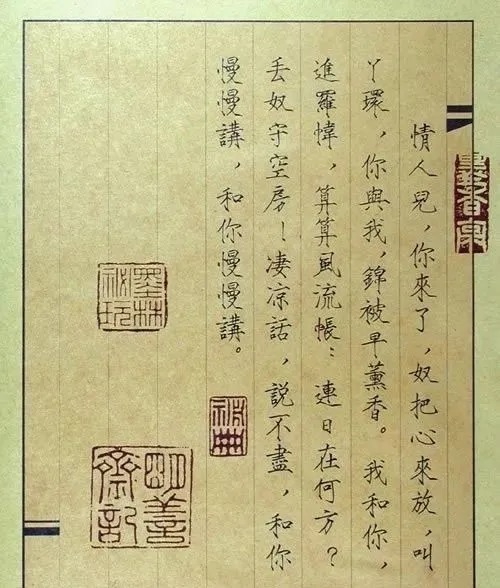 情人兒，你來了，奴把心來放，叫
丫環，你與我，錦被早薰香。我和你，
進羅幃，算算風流帳：連日在何方？
丢奴守空房！凄凉話，說不盡，和你
慢慢講，和你慢慢講。
墨林
祕玩
明善
齋記